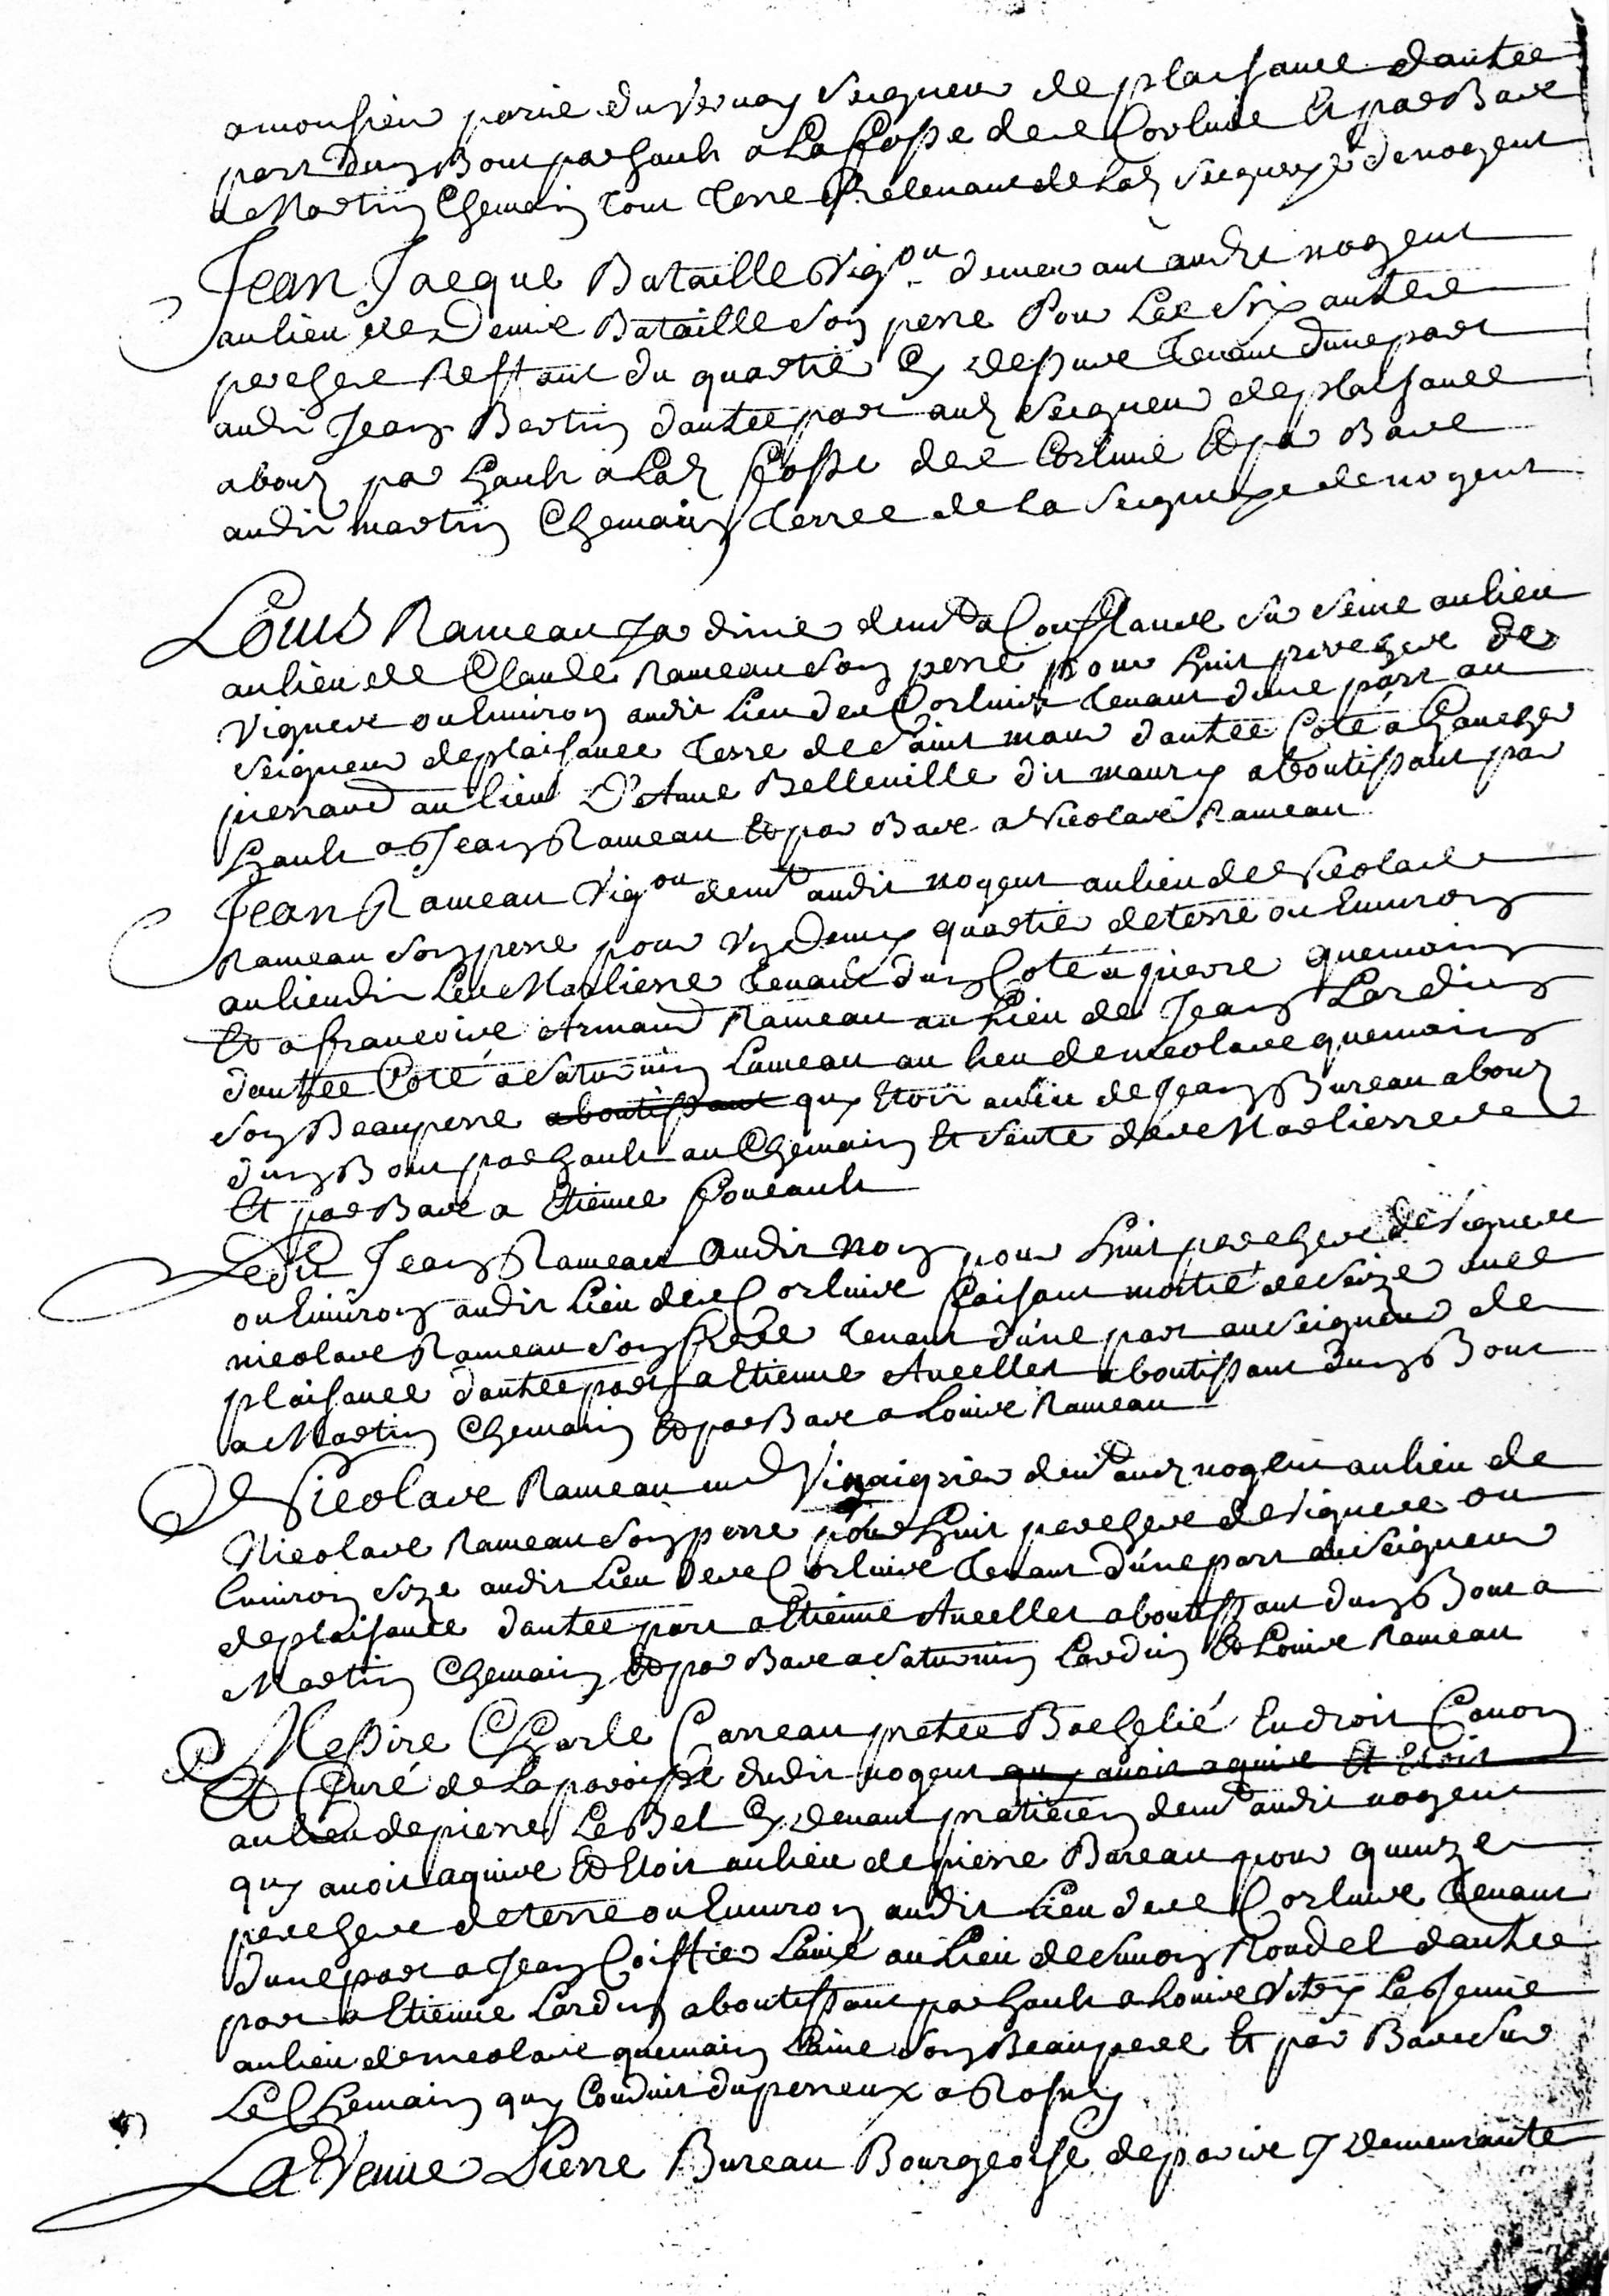 amonsieur parié duvernay seigneur de plaisance dautre
part dun Bout par hault a La fosse des Corluis Et par Bas
a Martin Chemain tout terre Relevant de Lad seigneurie de nogent
Jean Jacque Bataille Vig.on demeurant audit nogent
au lieu de Denis Bataille son perre Pour Les six autres
perches Restant du quartié cy dessus tenant dune part
audit Jean Bertin dautre part aud seigneur de plaisance
about par hault a Lad fosse des Corluis Et par Bas
audit martin Chemain terres de la seigneurie de nogent
Louis Rameau Jardinié demt a Conflans sur seine au lieu
au lieu de Claude Rameau son perre pour huit perches de
Vignes ou Environ audit Lieu des Corluis tenant dune part au
seigneur de plaisance terre de saint maur dautre Coté a
pierre au lieu D'Anne Belleville dit maury aboutissant par
hault a Jean Rameau Et par Bas a Nicolas Rameau
Jean Rameau Vigon demt audit nogent au lieu de Nicolas
Rameau son perre pour Un Demy quartié de terre ou Environ
au lieu dit Les Marlierre tenant dun Coté a pierre quemain
Et a francois Armand Rameau au Lieu de Jean Lardin
dautre Coté a saturnin Lameau au lieu de nicolas quemain
son Beauperre aboutissant quy Etoit au lieu de Jean Bureau about
dun Bout par hault au Chemain Et sente des Marlierres
Et par Bas a Etienne Foucault
Ledit Jean Rameau audit nom pour huit perches de Vignes
ou Environ audit Lieu des Corluis faisant moitié de seize avec
nicolas Rameau son frere tenant d'une part au seigneur de
plaisance dautre part a Etienne Ancellet aboutissant dun Bout
a Martin Chemain Et par Bas a Louis Rameau
Nicolas Rameau md Vinaigrié demt aud nogent au lieu de
Nicolas Rameau son perre pour huit perches de Vignes ou
Environ size audit Lieu des Corluis tenant d'une part au seigneur
de plaisance dautre part a Etienne Ancellet aboutissant dun Bout a
Martin Chemain Et par Bas a saturnin Lardin Et Louis Rameau
Messire Charle Carreau pretre Bachelié En droit Canon
Et Curé de La paroisse dudit nogent quy avoit aquis Et Etoit
au lieu de pierre Le Bel Cy devant praticien demt audit nogent
quy avoit aquis Et Etoit au lieu de pierre Bureau pour quinze
perches de terre ou Environ audit Lieu des Corluis tenant
dune part a Jean Coiffier Lainé au Lieu de simon Rondel dautre
part a Etienne Lardin aboutissant par hault a Louis Vitry Le Jeune
au lieu de nicolas quemain Lainé son Beaupere Et par Bas sur
Le Chemain quy Conduit du perreux a Rosny
La Veuve Pierre Bureau Bourgeoise de paris y demeurante